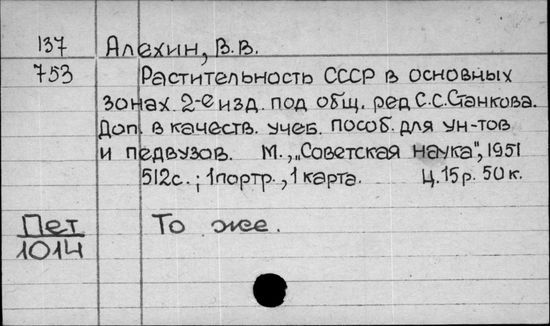 137 Алехин, В.В.
753 Растительность СССР в основных
зонах. 2-е изд. под общ. ред С.С.Станкова.
Доп. в качеств. учеб. пособ. для ун-тов
и педвузов. М., „Советская наука", 1951
512с.; 1портр., 1 карта. Ц. 15р. 50к.
Пет То же.
1014